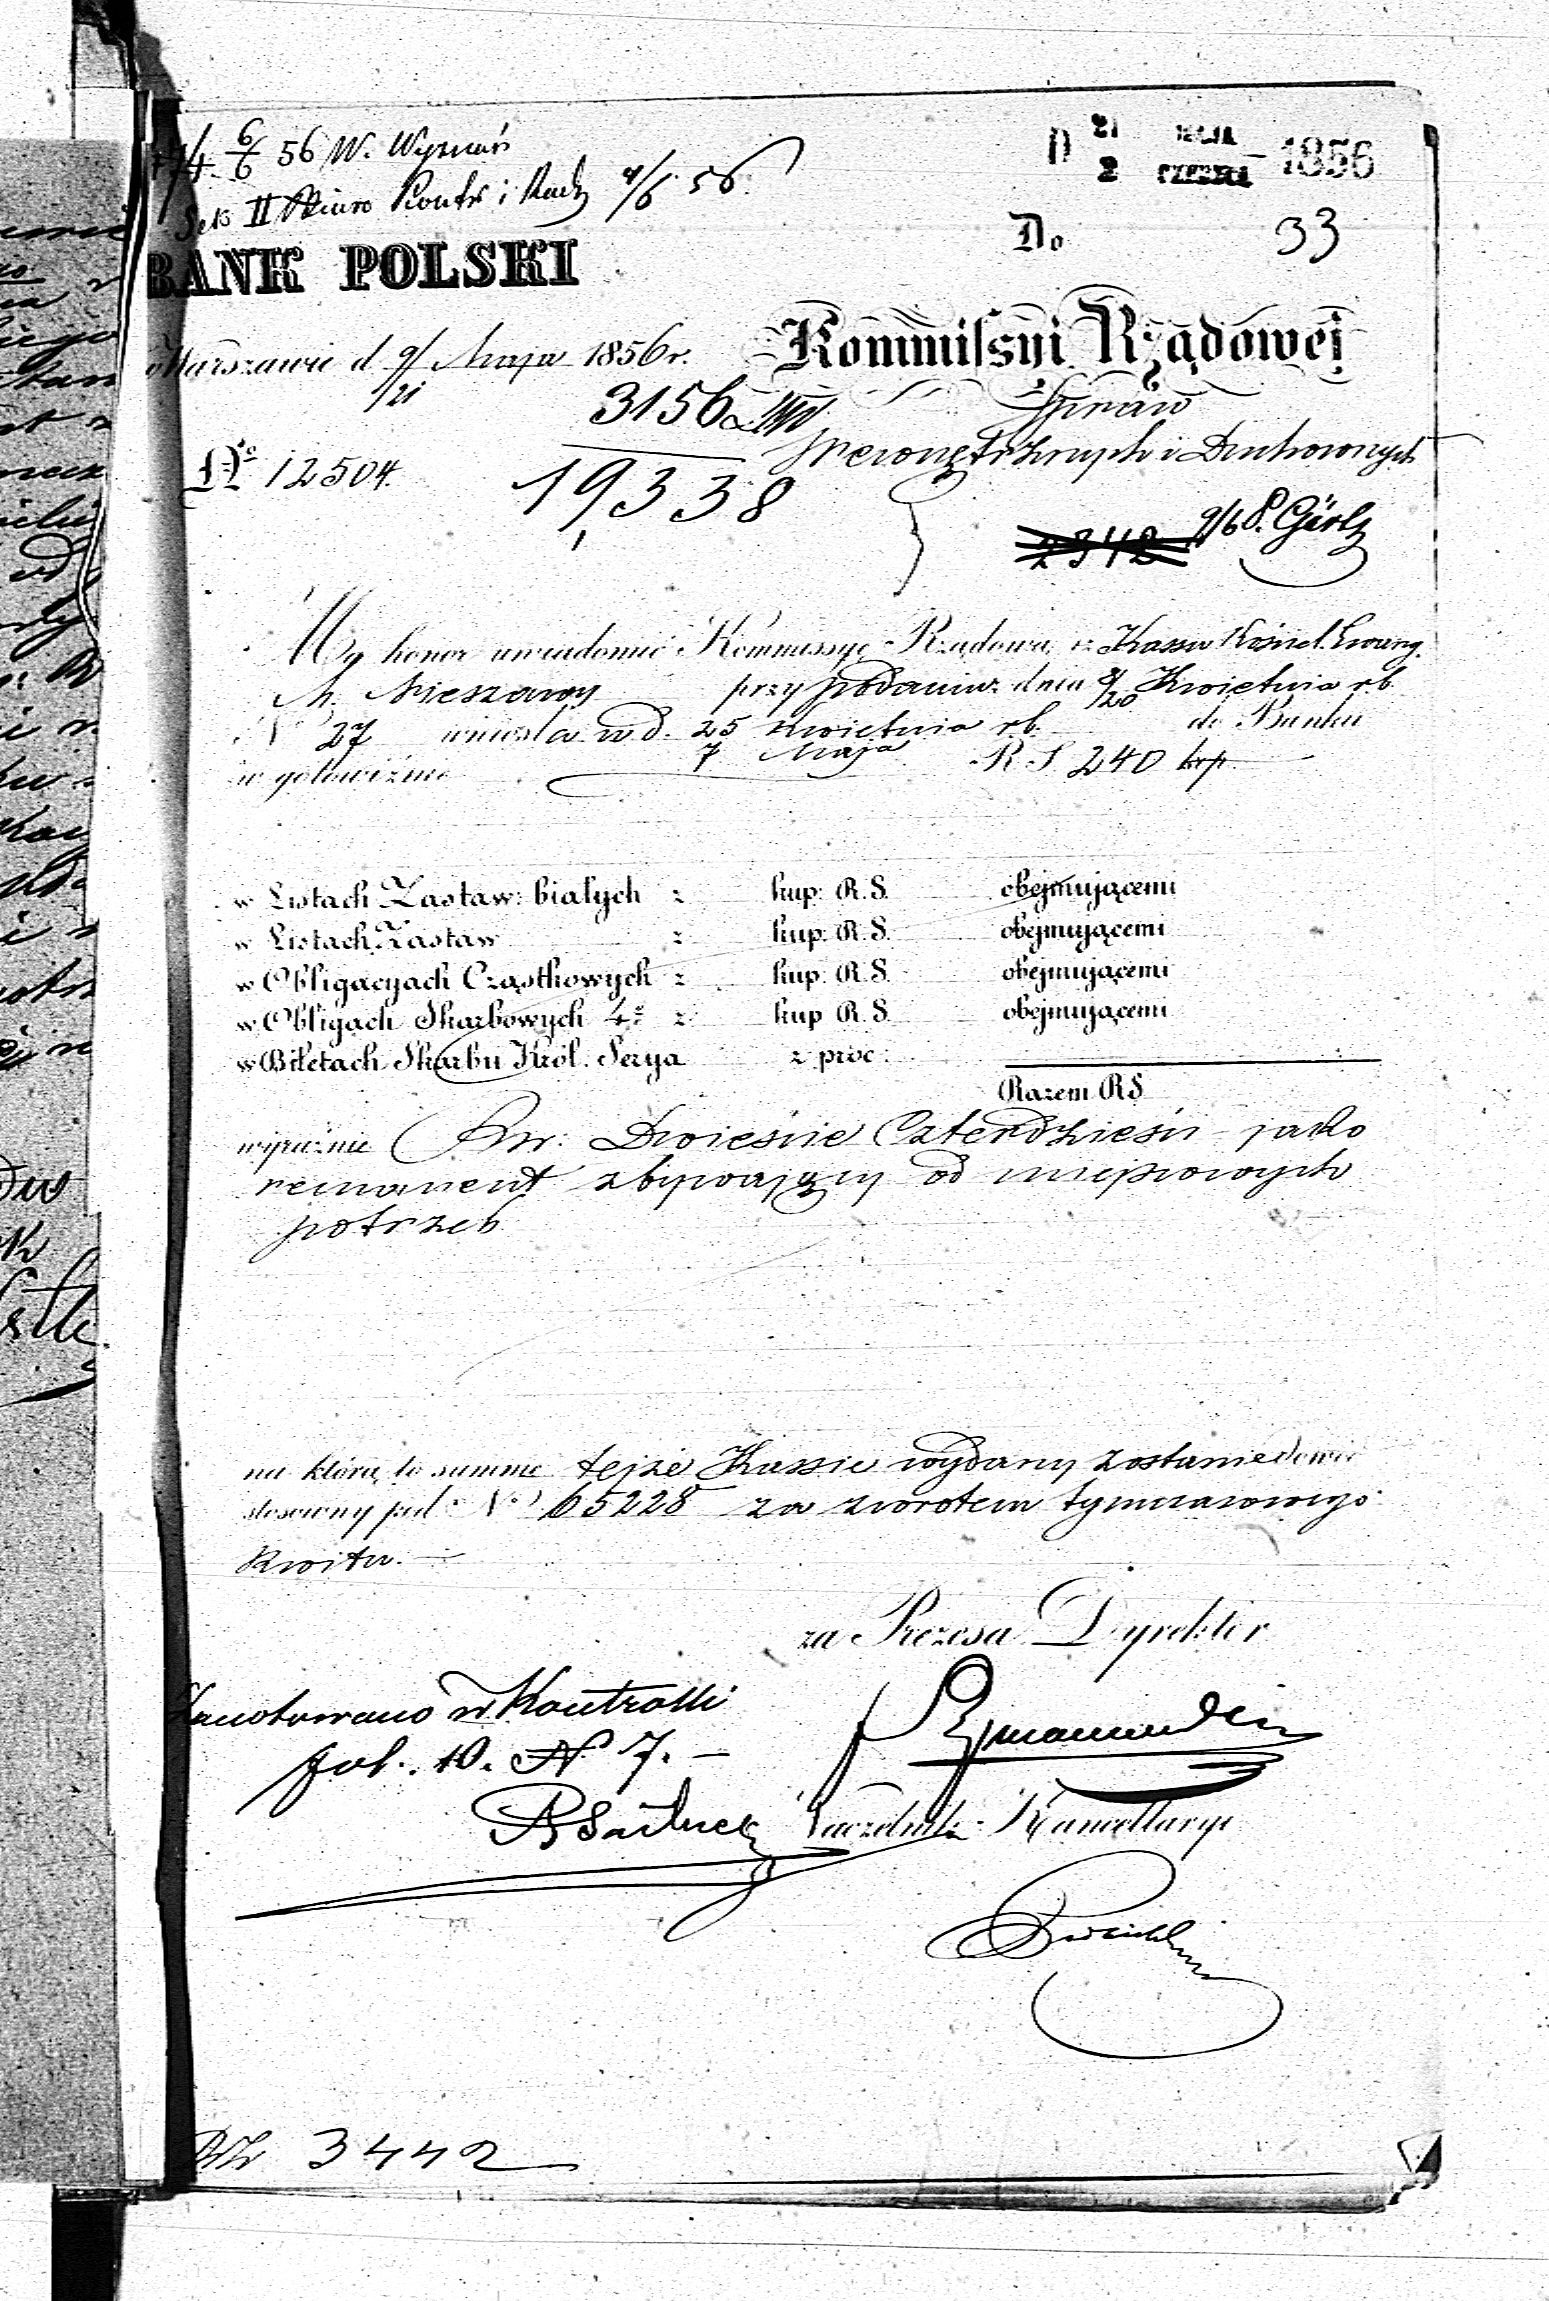 6/6 56 W. Wyznań
Sek II Biuro Kontr i Rach 4/6 56.
D 21 MAJA
2 CZERWCA 1856
Do 33
BANK POLSKI
Kommissyi Rządowej
w Warszawie d 9/21 Maja 1856 r.
Spraw
3156
Wewnętrznych i Duchownych
No 12504.
19,338
2342 9/6 P. Görtz
Ma honor uwiadomić Kommissyę Rządową, iż Kassa Kościel. Ewang.
M. Nieszawy przy podaniu z dnia 8/20 Kwietnia r.b.
N 27 wniosła w d. 25 Kwietnia r.b. do Banku
7 Maja
w gotowiźnie R. S. 240 kop.
w Listach Zastaw: białych z kup: R. S. obejmującemi
w Listach Zastaw z kup: R. S. obejmującemi
w Obligacyach Cząstkowych z kup: R. S. obejmującemi
w Obligach Skarbowych 4% z kup R. S. obejmującemi
w Biletach Skarbu Król. Serya z proc:
Razem RS
wyraźnie Rsr: Dwieście Czterdzieści jako
remanent zbywający od miejscowych
potrzeb
na którą to summę tejże Kassie wydany zostanie dowód
stosowny pod No 65228 za zwrotem tymczasowego
kwitu. —
za Prezesa Dyrektor
Zanotowano w Kontrolli
fol. 10. N 7. —
Naczelnik Kancellaryi
3442